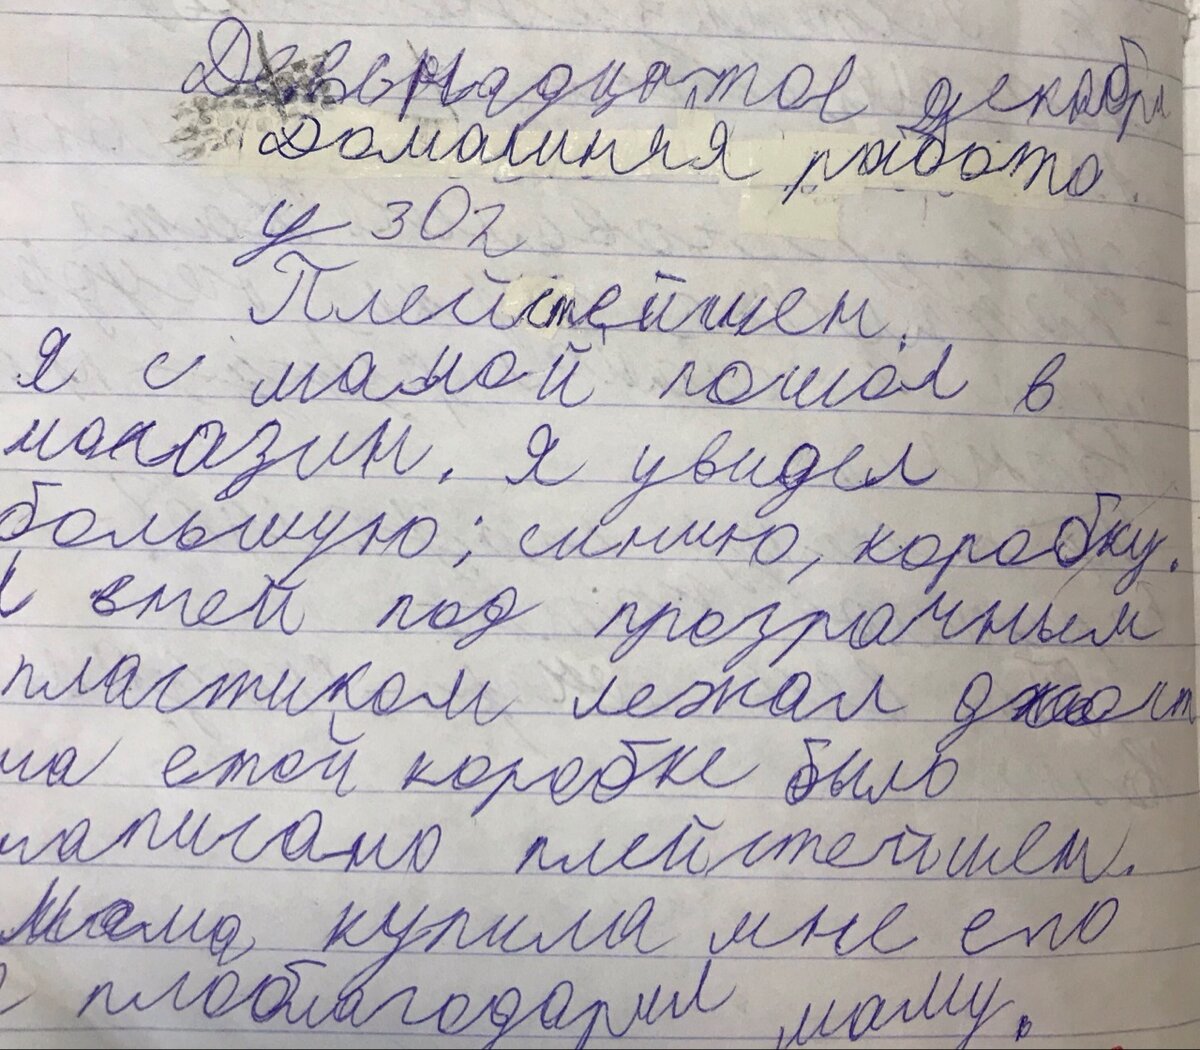 Двенадцатое декабря
Домашняя работа.
у 302
Плейстейшен.
Я с мамой пошол в
моказин. Я увидел
большую; синию, коробку.
И вней под прозрачным
пластиком лежал
на етой коробке было
написано плейстейшен.
Мама купила мне его
поблагодарил маму.